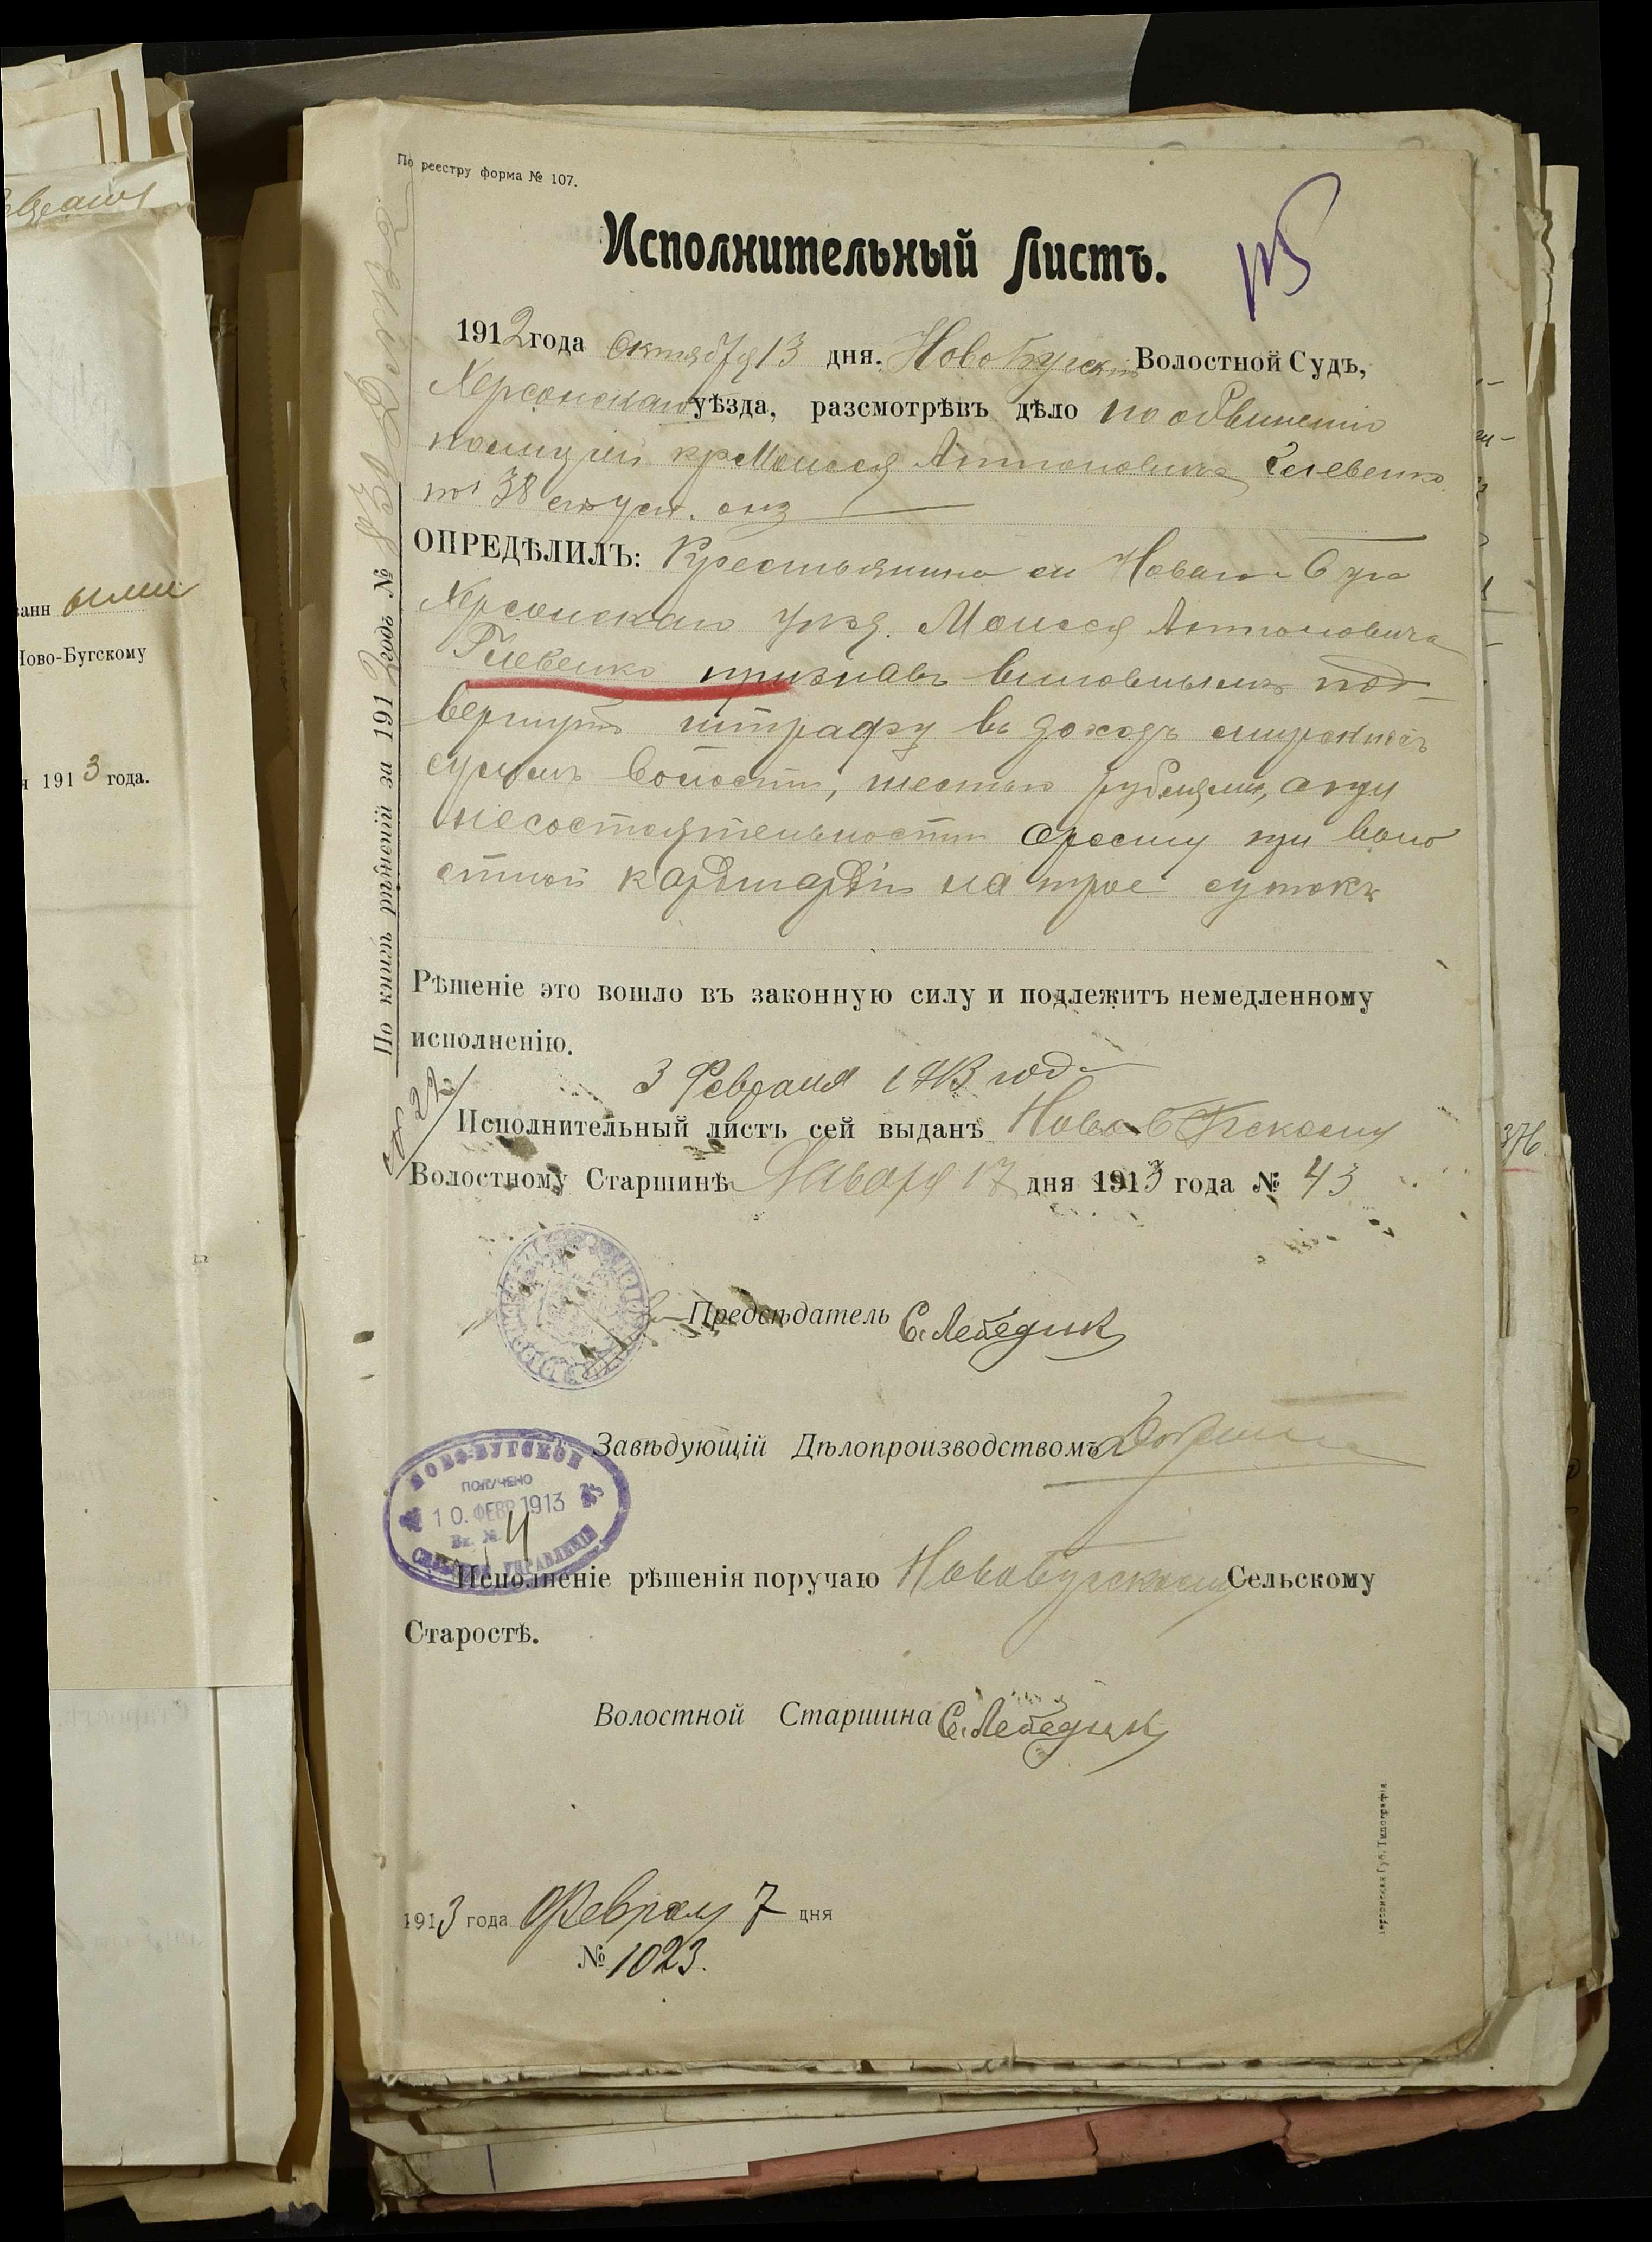 По реестру форма № 107.
Исполнительный Листъ.
1912 года Октября 13 дня. Новобугскій Волостной Судъ,
Херсонскаго уѣзда, разсмотрѣвъ дѣло по обвиненію
полиціей кр Моисея Антоновича
по 38 ст уст. о нз
ОПРЕДѢЛИЛЪ: Крестьянина с Новаго Буга
Херсонскаго уѣзд. Моисея Антоновича
признавъ виновнымъ под-
вергнуть штрафу въ доходъ мирскихъ
суммъ волости, шестью рублями, а при
несостоятельности аресту при воло
стной на трое сутокъ
Рѣшеніе это вошло въ законную силу и подлежитъ немедленному
исполненію.
3 Февраля 1913 года
Исполнительный листъ сей выданъ Ново Бугскому
Волостному Старшинѣ Января 17 дня 1913 года № 43
Предсѣдатель С. Лебедик
Завѣдующій Дѣлопроизводствомъ
НОВО-БУГСКОЕ
ПОЛУЧЕНО
10. ФЕВР 1913
Вх. №
УПРАВЛЕНІЕ
Исполненіе рѣшенія поручаю Новобугскому Сельскому
Старостѣ.
Волостной Старшина С. Лебедик
1913 года Февраля 7 дня
№ 1023.
Херсонская Губ. Типографія
По книгѣ рѣшеній за 1912 годъ №
анн ыми
Ново-Бугскому
я 1913 года.
376.